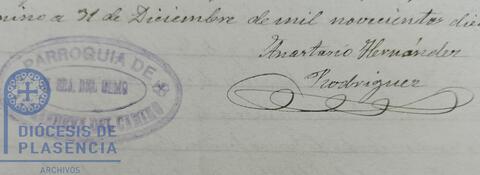 nino a 31 de Diciembre de mil novecientos die
Anastasio Hernández
Rodríguez
PARROQUIA DE
SRA. DEL
DEL CAMINO
DIÓCESIS DE
PLASENCIA
ARCHIVOS